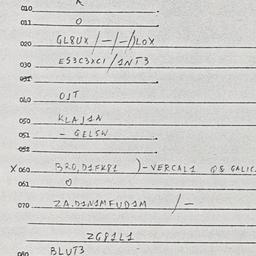 010
011 O
020 GL8UX/-/-/)LOX
030 ES3C3XCI/1NT3
031
040 OJT
050 KLAJ1N
051 - GELSW
052
X 060 BRO,D1FKP1 )-VERCAL1 GALIC
061 O
070 ZA.D1N1MFUD1M /-
ZG81L1
080 BLUT3